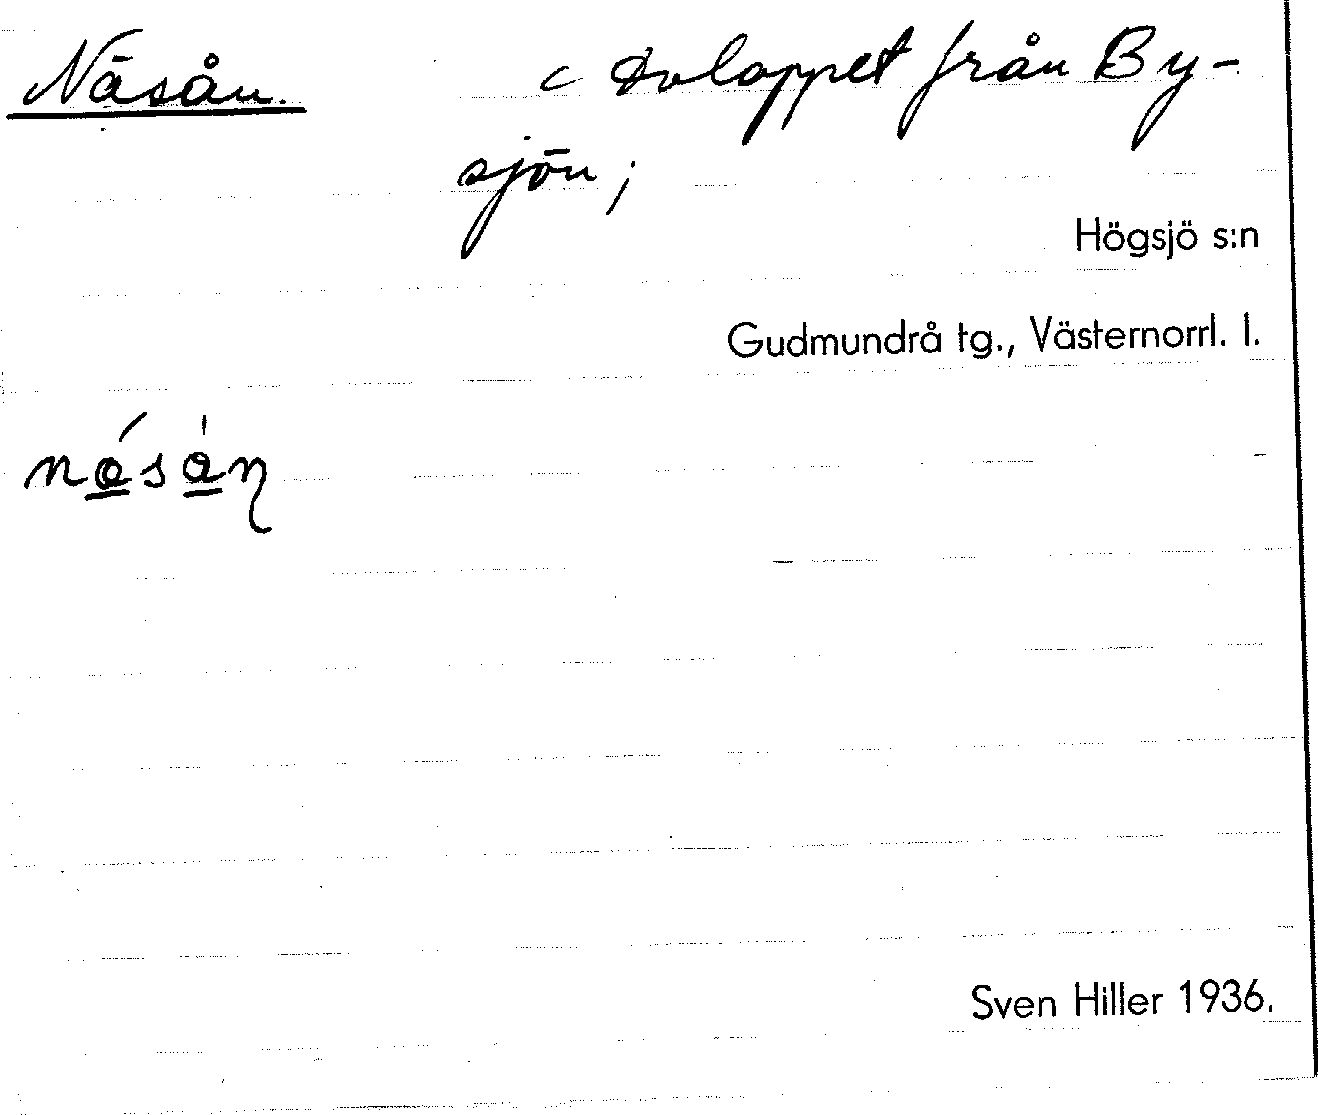 Näsån. c Avloppet från By-
sjön;
Högsjö s:n
Gudmundrå tg., Västernorrl. l.
Sven Hiller 1936.